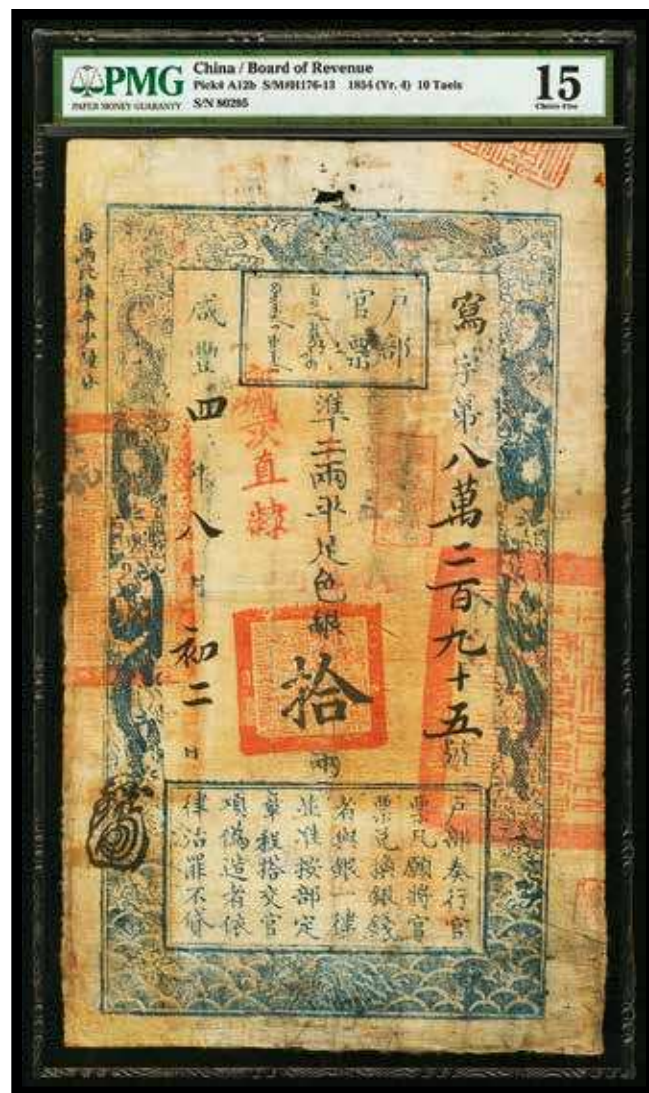 PMG
PAPER MONEY GUARANTY
China / Board of Revenue
Pick# A12b S/M#H176-13 1854 (Yr. 4) 10 Taels
S/N 80295
15
Choice Fine
户部
官票
寫字第八萬二百九十五號
準二兩平足色銀拾兩
直隸
咸豐四年八月初二日
户部奏行官
票凡願將官
票兑換銀錢
者與銀一律
並准按部定
章程搭交官
項偽造者依
律治罪不貸